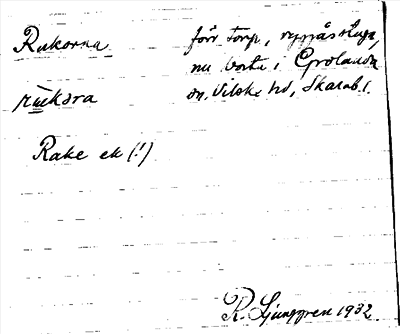 Rukorna förr torp, ryggåsstuga,
nu borta i Grolanda
sn. Vilske hd, Skarab.
rùkɔra
Rake ek (!)
R. Ljunggren 1932